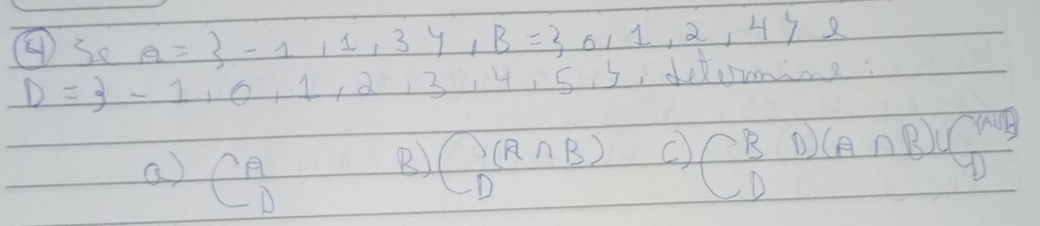 4) Se A = {-1, 1, 3}, B = {0, 1, 2, 4} e
D = {-1, 0, 1, 2, 3, 4, 5}, determine:
a) C A D B) C (A ∩ B) D C) C B D D) (A ∩ B) ∪ C (A∪B) D